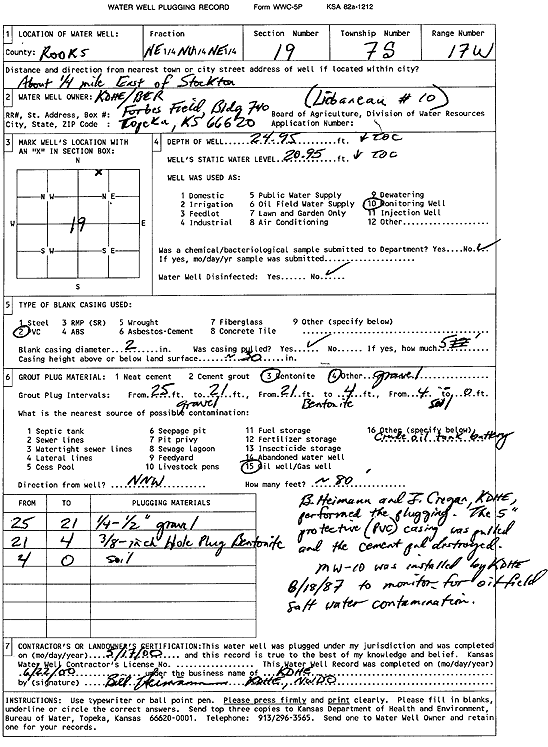 WATER WELL PLUGGING RECORD Form WWC-5P KSA 82a-1212
1 LOCATION OF WATER WELL: Fraction Section Number Township Number Range Number
County: ROOKS NE 1/4 NW 1/4 NE 1/4 19 7S 17W
Distance and direction from nearest town or city street address of well if located within city?
About 1/4 mile East of Stockton
2 WATER WELL OWNER: KDHE/BER (Liobaneau # 10)
RR#, St. Address, Box #: Forbes Field Bldg 740 Board of Agriculture, Division of Water Resources
City, State, ZIP Code : Topeka, KS 66620 Application Number:
3 MARK WELL'S LOCATION WITH AN "X" IN SECTION BOX:
N
X
N W N E
W 19 E
S W S E
S
4 DEPTH OF WELL 24.95 ft. ↓ TOC
WELL'S STATIC WATER LEVEL 20.95 ft. ↓ TOC
WELL WAS USED AS:
1 Domestic 5 Public Water Supply 9 Dewatering
2 Irrigation 6 Oil Field Water Supply 10 Monitoring Well
3 Feedlot 7 Lawn and Garden Only 11 Injection Well
4 Industrial 8 Air Conditioning 12 Other
Was a chemical/bacteriological sample submitted to Department? Yes....No ✓
If yes, mo/day/yr sample was submitted
Water Well Disinfected: Yes...... No ✓
5 TYPE OF BLANK CASING USED:
1 Steel 3 RMP (SR) 5 Wrought 7 Fiberglass 9 Other (specify below)
2 PVC 4 ABS 6 Asbestos-Cement 8 Concrete Tile
Blank casing diameter 2 in. Was casing pulled? Yes ✓ No...... If yes, how much 5
Casing height above or below land surface ~ 30 in.
6 GROUT PLUG MATERIAL: 1 Neat cement 2 Cement grout 3 Bentonite 4 Other gravel
Grout Plug Intervals: From 25 ft. to 21 ft., From 21 ft. to 4 ft., From 4 to 0 ft.
gravel Bentonite soil
What is the nearest source of possible contamination:
1 Septic tank 6 Seepage pit 11 Fuel storage 16 Other (specify below)
2 Sewer lines 7 Pit privy 12 Fertilizer storage Crude oil tank battery
3 Watertight sewer lines 8 Sewage lagoon 13 Insecticide storage
4 Lateral lines 9 Feedyard 14 Abandoned water well
5 Cess Pool 10 Livestock pens 15 Oil well/Gas well
Direction from well? NNW How many feet? ~ 80
FROM TO PLUGGING MATERIALS
25 21 1/4-1/2" gravel
21 4 3/8-inch Hole Plug Bentonite
4 0 soil
B. Heimann and J. Cregan, KDHE,
performed the plugging. The 5"
protective (PVC) casing was pulled
and the cement pad destroyed.
MW-10 was installed by KDHE
8/18/87 to monitor for oilfield
salt water contamination.
7 CONTRACTOR'S OR LANDOWNER'S CERTIFICATION:This water well was plugged under my jurisdiction and was completed
on (mo/day/year) 3/27/00 and this record is true to the best of my knowledge and belief. Kansas
Water Well Contractor's License No. This Water Well Record was completed on (mo/day/year)
6/22/00 under the business name of KDHE
by (signature) Bill Heimann KDHE, NWDO
INSTRUCTIONS: Use typewriter or ball point pen. Please press firmly and print clearly. Please fill in blanks,
underline or circle the correct answers. Send top three copies to Kansas Department of Health and Environment,
Bureau of Water, Topeka, Kansas 66620-0001. Telephone: 913/296-3565. Send one to Water Well Owner and retain
one for your records.